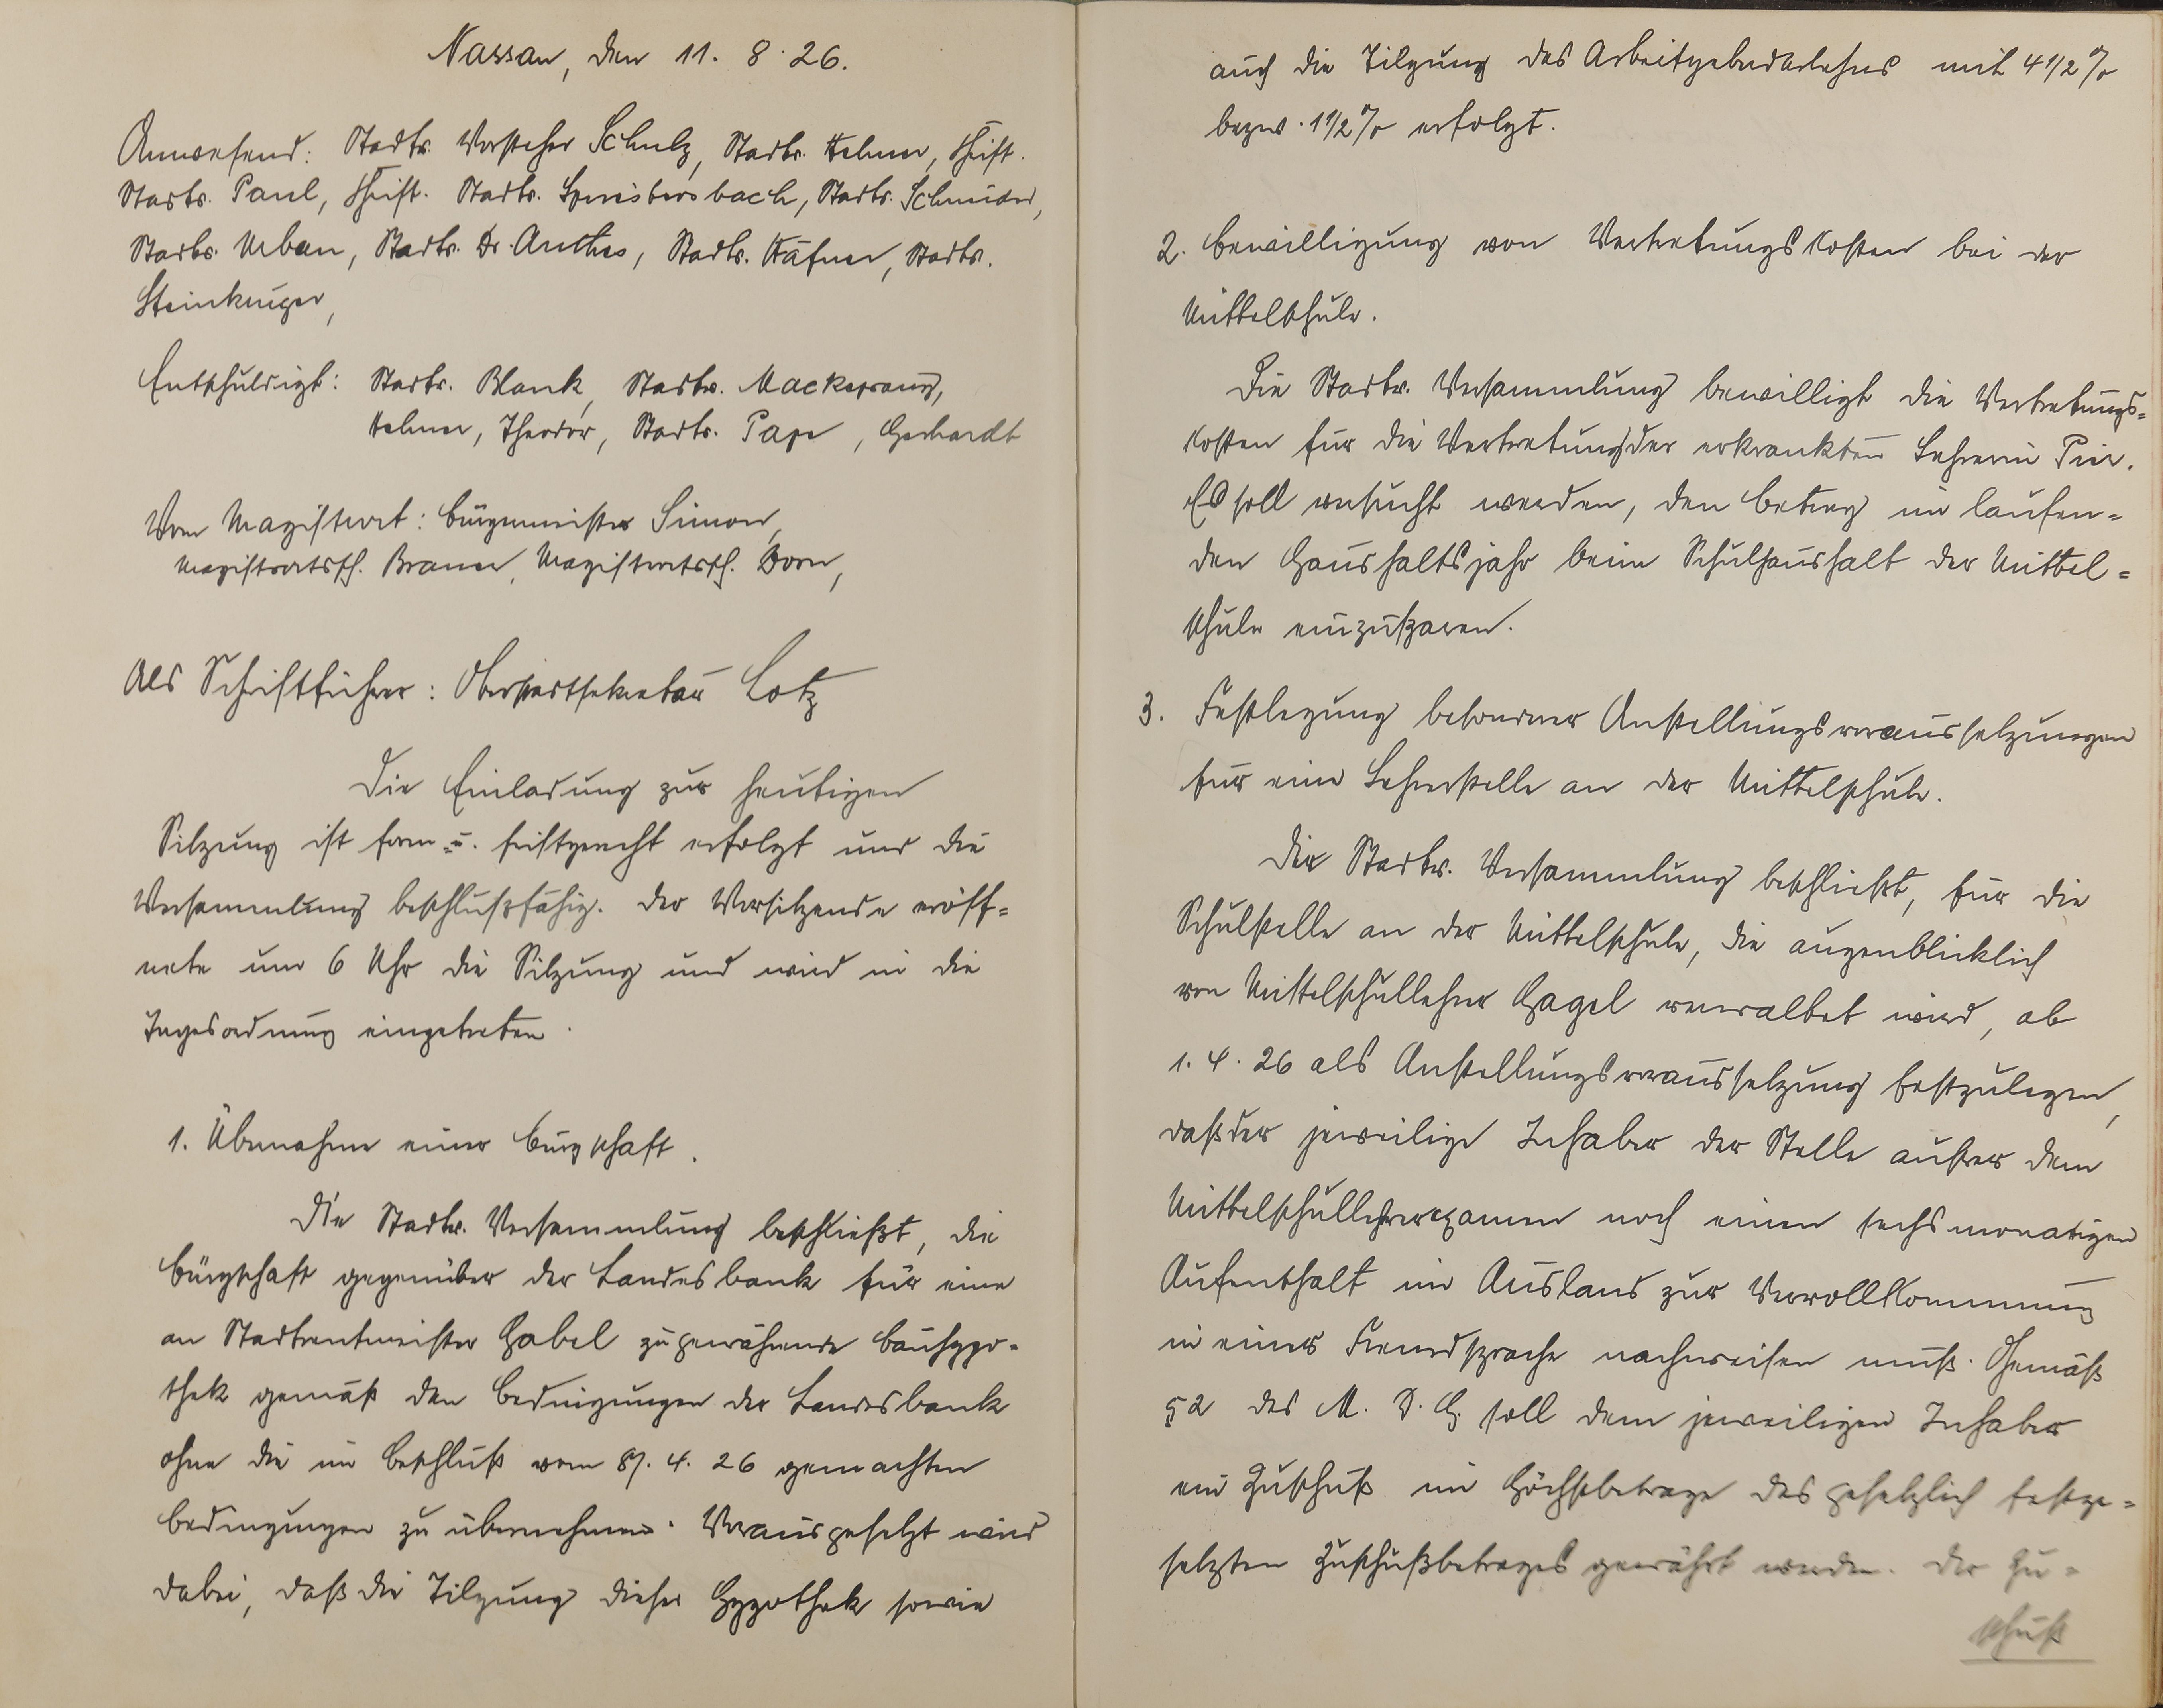 Nassau, den 11. 8. 26.
Anwesend: Stadtv. Vorsteher Schulz, Stadtv. Helmer, Schrift.
Stadtv. Paul, Schrift. Stadtv. Stadtv. Schmider,
Stadtv. Urban, Stadtv. Dr. Anthes, Stadtv. Häfner, Stadtv.
Steinkrüger,
Entschuldigt: Stadtv. Blank, Stadtv. Mackeprang,
Helmer, Theodor, Stadtv. Pape, Gerhardt
Vom Magistrat: Bürgermeister Simon,
Magistratssch. Braun, Magistratssch. Born,
Als Schriftführer: Lotz
Die Einladung zur heutigen
Sitzung ist form- u. fristgerecht erfolgt und die
Versammlung beschlußfähig. Der Vorsitzende eröff-
nete um 6 Uhr die Sitzung und wird in die
Tagesordnung eingetreten.
1. Übernahme einer Bürgschaft.
Die Stadtv. Versammlung beschließt, die
Bürgschaft gegenüber der Landesbank für eine
an Stadtrentmeister Gabel zu gewährende Bauhypo-
thek gemäß den Bedingungen der Landesbank
ohne die im Beschluß vom 4. 26 gemachten
Bedingungen zu übernehmen. Vorausgesetzt wird
dabei, daß die Tilgung dieser Hypothek sowie
auch die Tilgung des Arbeitgeberdarlehns mit 4 1/2 %
bezw. 1 1/2 % erfolgt.
2. Bewilligung von Vertretungskosten bei der
Mittelschule.
Die Stadtv. Versammlung bewilligt die Vertretungs-
kosten für die Vertretung der erkrankten Lehrerin Pier.
Es soll versucht werden, den Betrag im laufen-
den Haushaltsjahr beim Schulhaushalt der Mittel-
schule einzusparen.
3. Festlegung besonderer Anstellungsvoraussetzungen
für eine Lehrerstelle an der Mittelschule.
Die Stadtv. Versammlung beschließt, für die
Schulstelle an der Mittelschule, die augenblicklich
von Mittelschullehrer Hagel verwaltet wird, ab
1. 4. 26 als Anstellungsvoraussetzung festzulegen,
daß der jeweilige Inhaber der Stelle außer dem
Mittelschullehrerexamen noch einen sechsmonatigen
Aufenthalt im Ausland zur Vervollkommnung
in einer Fremdsprache nachweisen muß. Gemäß
§ 2 des M. D. G. soll dem jeweiligen Inhaber
ein Zuschuß im Höchstbetrage des gesetzlich festge-
setzten Zuschußbetrages gewährt werden. Der Zu-
schuß